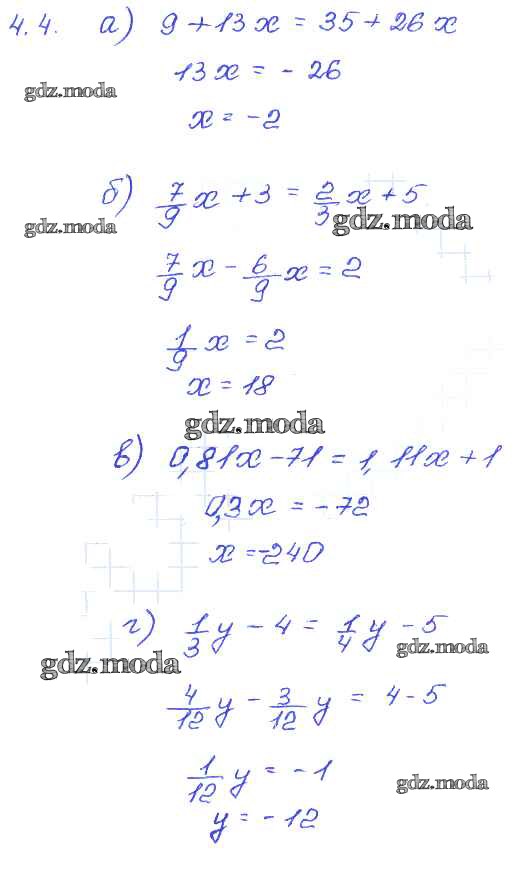 4.4. а) 9 + 13x = 35 + 26x
13x = - 26
gdz.moda
x = -2
б) 7/9 x + 3 = 2/3 x + 5
gdz.moda gdz.moda
7/9 x - 6/9 x = 2
1/9 x = 2
x = 18
gdz.moda
в) 0,81x - 71 = 1,11x + 1
0,3x = -72
x = -240
г) 1/3 y - 4 = 1/4 y - 5
gdz.moda gdz.moda
4/12 y - 3/12 y = 4 - 5
1/12 y = - 1
gdz.moda
y = - 12